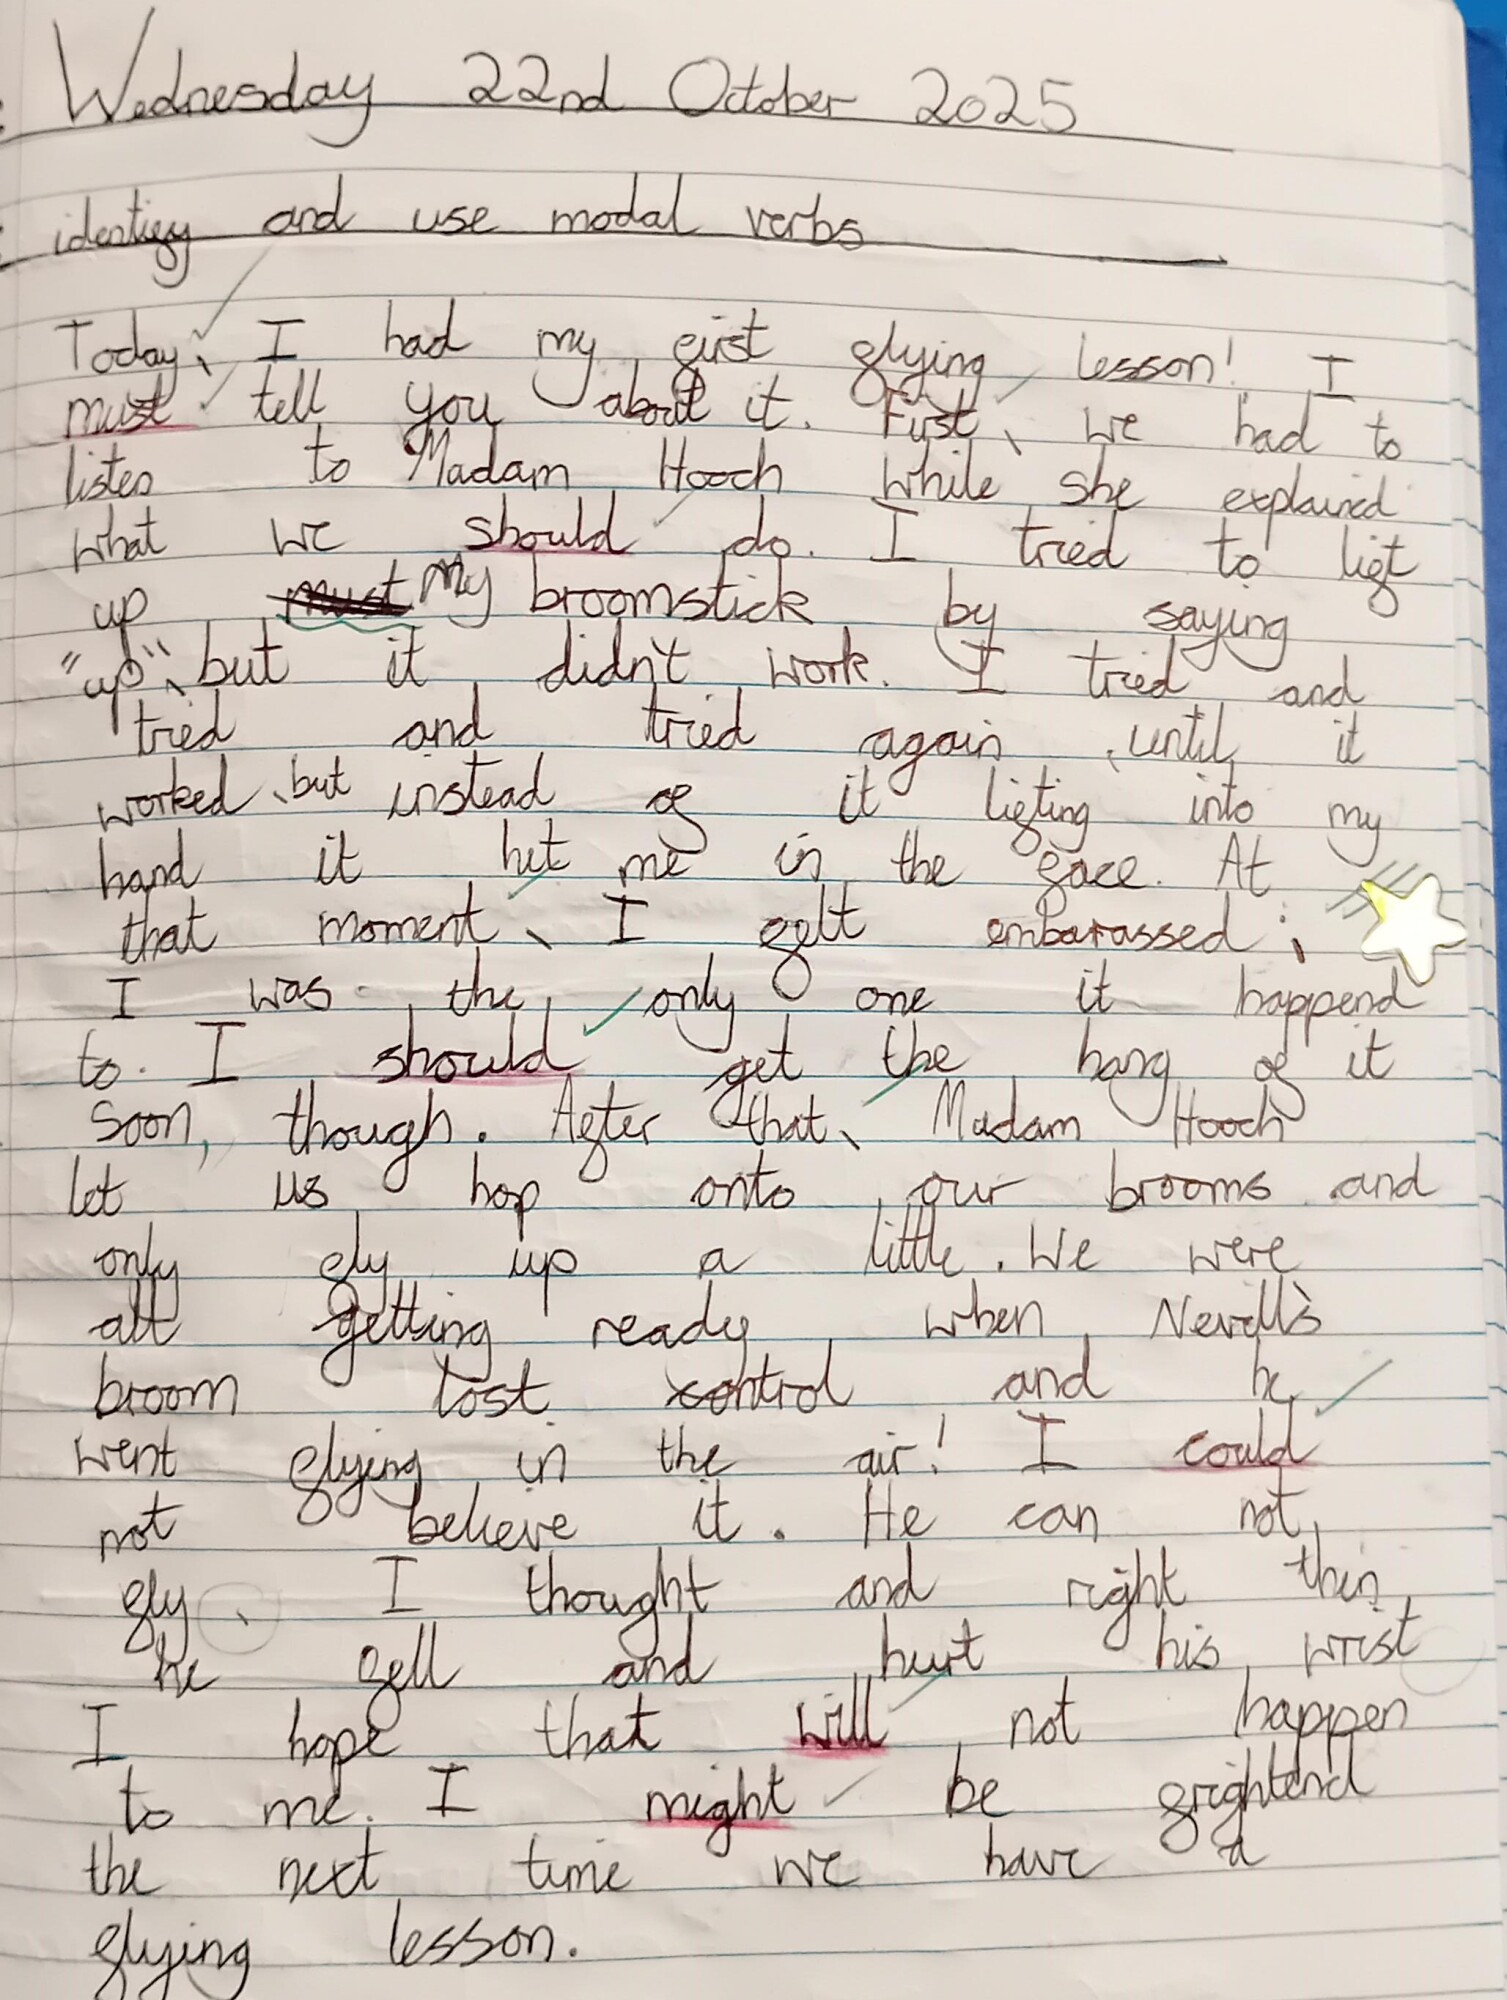 Wednesday 22nd October 2025
identify and use modal verbs
Today, I had my first flying lesson! I
must tell you about it. First, we had to
listen to Madam Hooch while she explained
what we should do. I tried to lift
up must my broomstick by saying
"up", but it didn't work. I tried and
tried and tried again, until it
worked, but instead of it lifting into my
hand it hit me in the face. At
that moment, I felt embarassed;
I was the only one it happend
to. I should get the hang of it
soon, though. After that, Madam Hooch
let us hop onto our brooms and
only fly up a little. We were
all getting ready when Nevill's
broom lost control and he
went flying in the air! I could
not believe it. He can not
fly, I thought and right then
he fell and hurt his wrist
I hope that will not happen
to me. I might be frightend
the next time we have a
flying lesson.